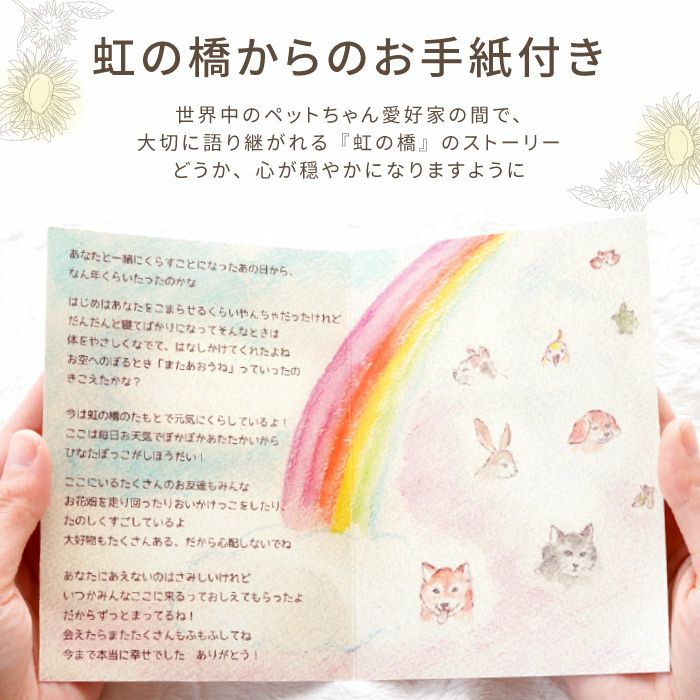 虹の橋からのお手紙付き
世界中のペットちゃん愛好家の間で、
大切に語り継がれる『虹の橋』のストーリー
どうか、心が穏やかになりますように
あなたと一緒にくらすことになったあの日から、
なん年くらいたったのかな
はじめはあなたをこまらせるくらいやんちゃだったけれど
だんだんと寝てばかりになってそんなときは
体をやさしくなでて、はなしかけてくれたよね
お空へのぼるとき「またあおうね」っていったの
きこえたかな？
今は虹の橋のたもとで元気にくらしているよ！
ここは毎日お天気でぽかぽかあたたかいから
ひなたぼっこがしほうだい！
ここにいるたくさんのお友達もみんな
お花畑を走り回ったりおいかけっこをしたり、
たのしくすごしているよ
大好物もたくさんある、だから心配しないでね
あなたにあえないのはさみしいけれど
いつかみんなここに来るっておしえてもらったよ
だからずっとまってるね！
会えたらまたたくさんもふもふしてね
今まで本当に幸せでした　ありがとう！